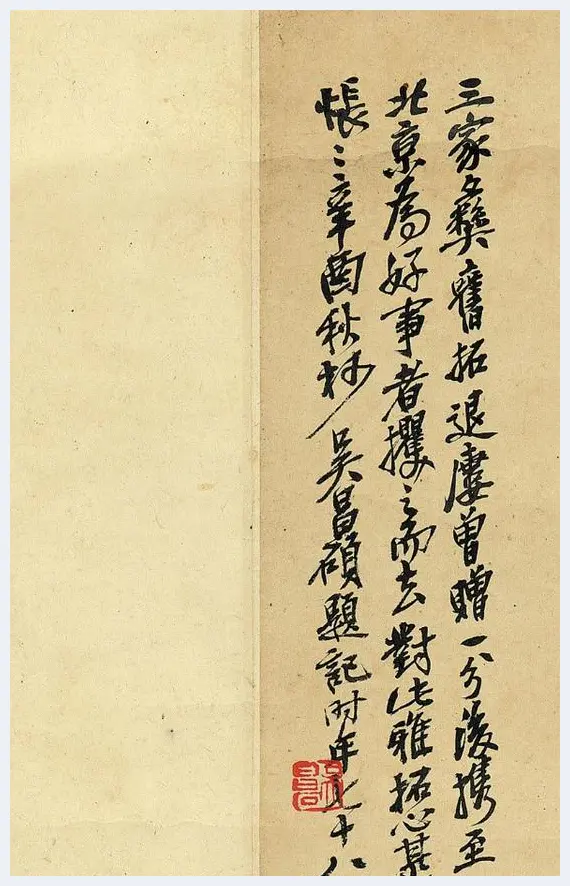 三家彝舊拓退廔曾贈一分後携至
北京為好事者攫之而去對此雅拓心甚
悵〻辛酉秋杪吳昌碩題記时年七十八